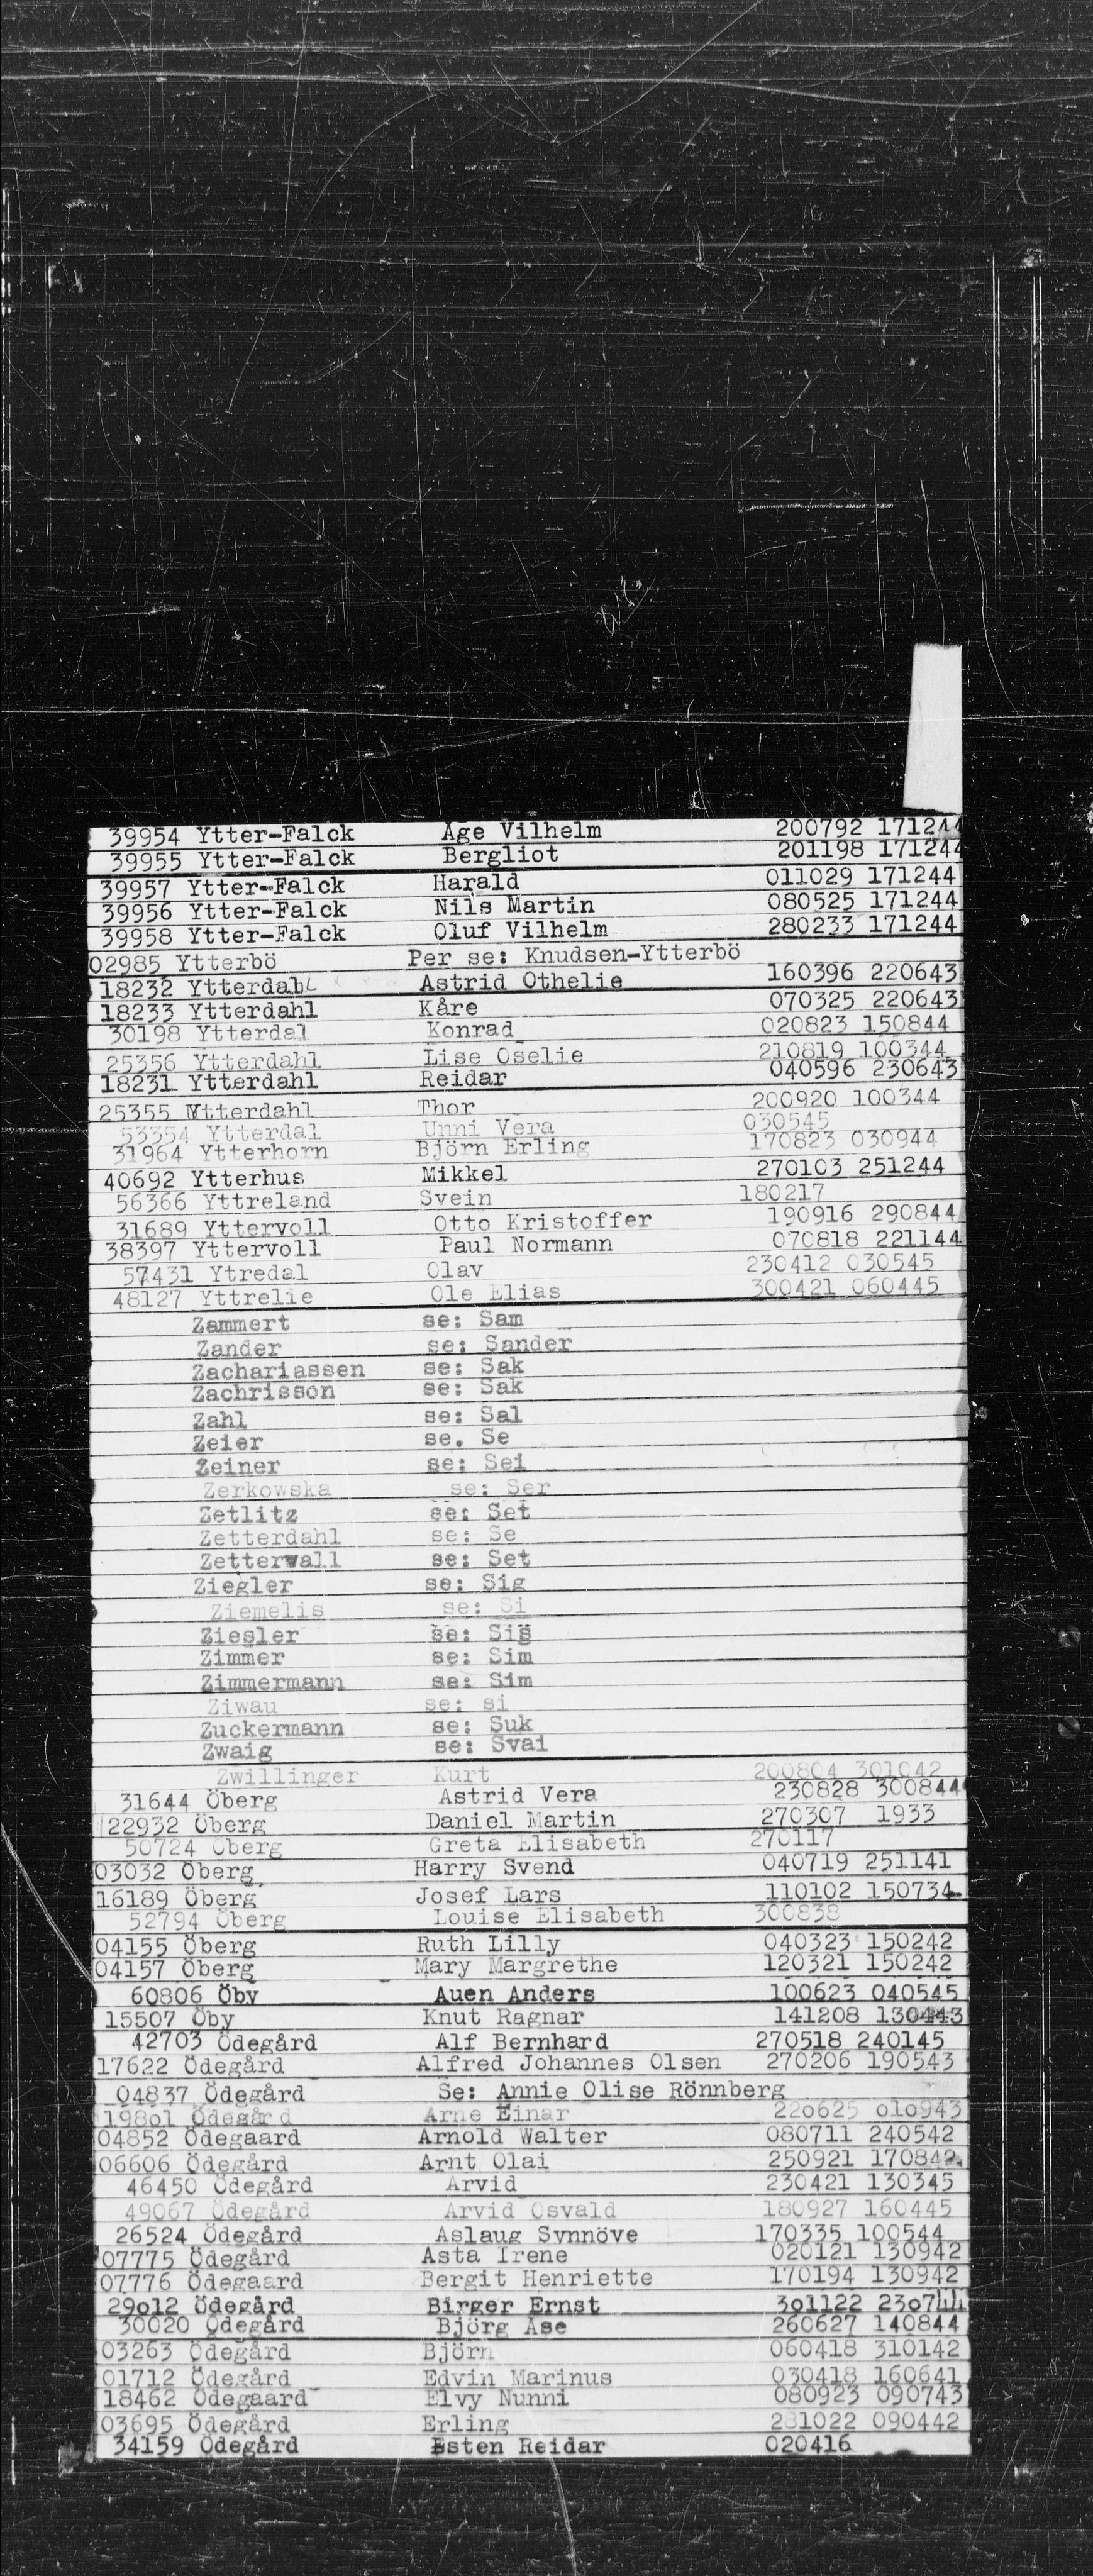 39954 Ytter-Falck Åge Vilhelm 200792 171244
39955 Ytter-Falck Bergliot 201198 171244
39957 Ytter-Falck Harald 011029 171244
39956 Ytter-Falck Nils Martin 080525 171244
39958 Ytter-Falck Oluf Vilhelm 280233 171244
02985 Ytterbö Per se: Knudsen-Ytterbö
18232 Ytterdahl Astrid Othelie 160396 220643
18233 Ytterdahl Kåre 070325 220643
30198 Ytterdal Konrad 020823 150844
25356 Ytterdahl Lise Oselie 210819 100344
18231 Ytterdahl Reidar 040596 230643
25355 Ytterdahl Thor 200920 100344
53354 Ytterdal Unni Vera 030545
31964 Ytterhorn Björn Erling 170823 030944
40692 Ytterhus Mikkel 270103 251244
56366 Yttreland Svein 180217
31689 Yttervoll Otto Kristoffer 190916 290844
38397 Yttervoll Paul Normann 070818 221144
57431 Ytredal Olav 230412 030545
48127 Yttrelie Ole Elias 300421 060445
Zammert se: Sam
Zander se: Sander
Zachariassen se: Sak
Zachrisson se: Sak
Zahl se: Sal
Zeier se. Se
Zeiner se: Sei
Zerkowska se: Ser
Zetlitz se: Set
Zetterdahl se: Se
Zetterwall se: Set
Ziegler se: Sig
Ziemelis se: Si
Ziesler se: Sis
Zimmer se: Sim
Zimmermann se: Sim
Ziwau se: si
Zuckermann se: Suk
Zwaig se: Svai
Zwillinger Kurt 200804 301042
31644 Öberg Astrid Vera 230828 300844
22932 Öberg Daniel Martin 270307 1933
50724 Öberg Greta Elisabeth 270117
03032 Öberg Harry Svend 040719 251141
16189 Öberg Josef Lars 110102 150734
52794 Öberg Louise Elisabeth 300838
04155 Öberg Ruth Lilly 040323 150242
04157 Öberg Mary Margrethe 120321 150242
60806 Öby Auen Anders 100623 040545
15507 Öby Knut Ragnar 141208 130443
42703 Ödegård Alf Bernhard 270518 240145
17622 Ödegård Alfred Johannes Olsen 270206 190543
04837 Ödegård Se: Annie Olise Rönnberg
19801 Ödegård Arne Einar 220625 010943
04852 Ödegaard Arnold Walter 080711 240542
06606 Ödegård Arnt Olai 250921 170842
46450 Ödegård Arvid 230421 130345
49067 Ödegård Arvid Osvald 180927 160445
26524 Ödegård Aslaug Synnöve 170335 100544
07775 Ödegård Asta Irene 020121 130942
07776 Ödegaard Bergit Henriette 170194 130942
29012 Ödegård Birger Ernst 301122 230744
30020 Ödegård Björg Åse 260627 140844
03263 Ödegård Björn 060418 310142
01712 Ödegård Edvin Marinus 030418 160641
18462 Ödegaard Elvy Nunni 080923 090743
03695 Ödegård Erling 281022 090442
34159 Ödegård Esten Reidar 020416